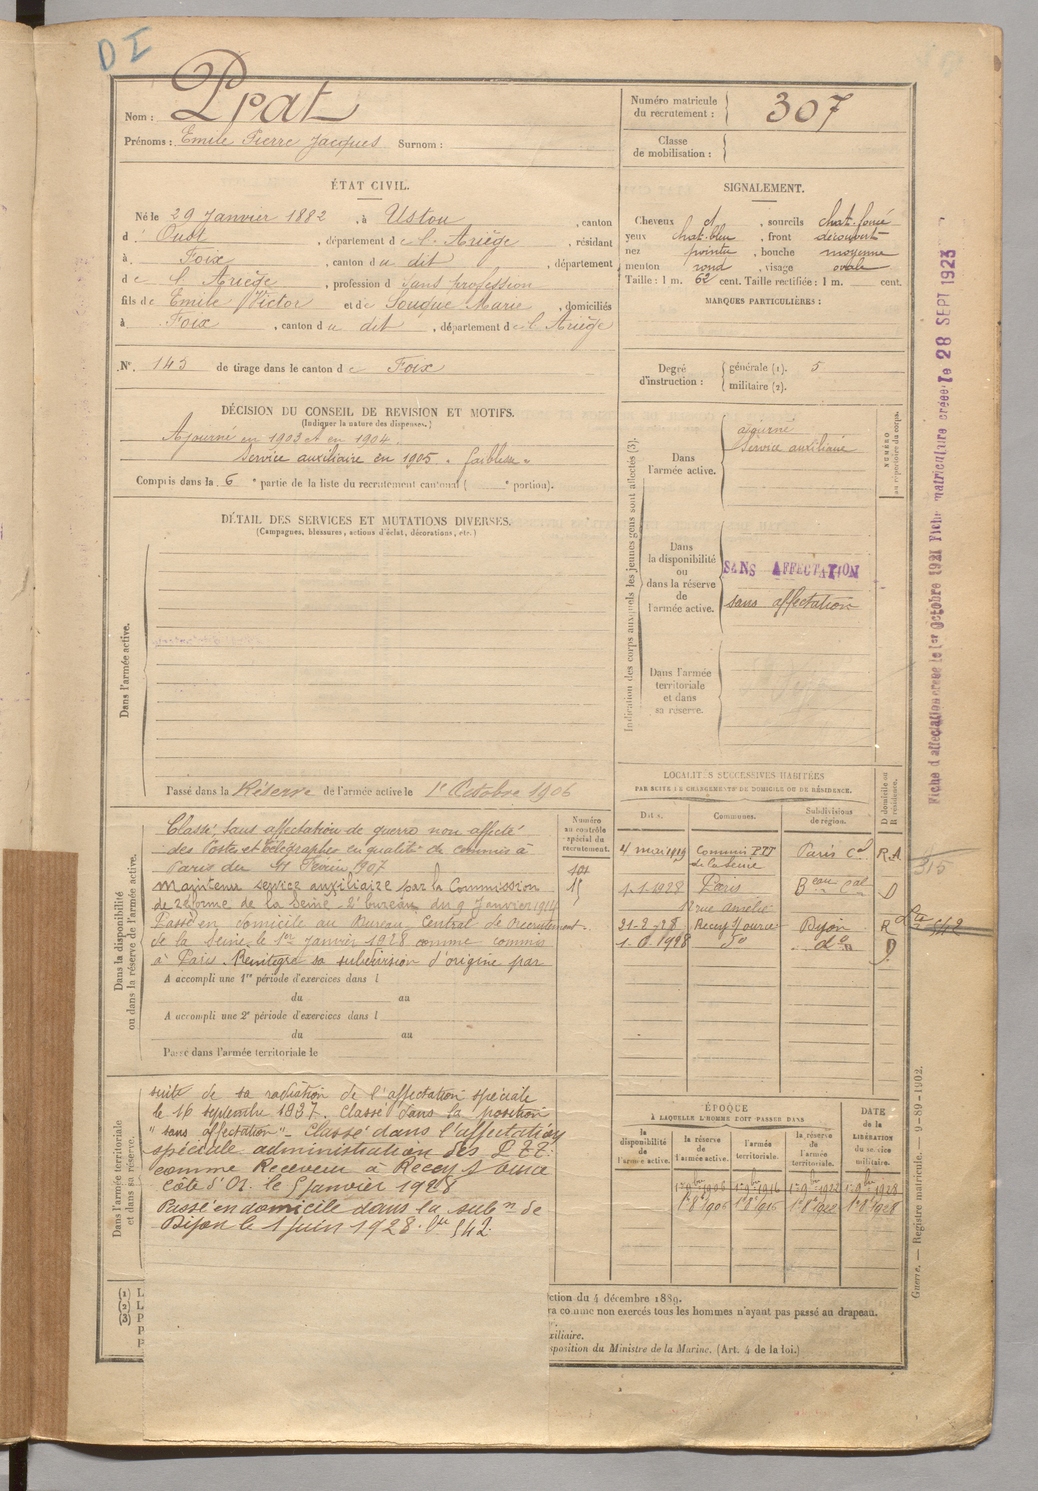 D I
Nom : Prat
Prénoms : Emile Pierre Jacques Surnom :
Numéro matricule
du recrutement : 307
Classe
de mobilisation :
ÉTAT CIVIL.
Né le 29 Janvier 1882, à Ustou, canton
d' Oust, département de l'Ariège, résidant
à Foix, canton du dit, département
de l'Ariège, profession d sans profession
fils de Emile Victor et de Souque Marie, domiciliés
à Foix, canton du dit, département de l'Ariège
N° 145 de tirage dans le canton de Foix
SIGNALEMENT.
Cheveux d, sourcils chat. foncé
yeux chat. bleu, front découvert
nez pointu, bouche moyenne
menton rond, visage ovale
Taille : 1 m. 62 cent. Taille rectifiée : 1 m. cent.
MARQUES PARTICULIÈRES :
Degré
d'instruction :
générale (1). 5
militaire (2).
DÉCISION DU CONSEIL DE REVISION ET MOTIFS.
(Indiquer la nature des dispenses.)
Ajourné en 1903 et en 1904.
Service auxiliaire en 1905 "faiblesse"
Compris dans la 6e partie de la liste du recrutement cantonal ( e portion).
DÉTAIL DES SERVICES ET MUTATIONS DIVERSES.
(Campagnes, blessures, actions d'éclat, décorations, etc.)
Dans l'armée active.
Passé dans la Réserve de l'armée active le 1er Octobre 1906
Indication des corps auxquels les jeunes gens sont affectés (3).
Dans
l'armée active.
ajourné
Service auxiliaire
NUMÉRO
au répertoire du corps.
Dans
la disponibilité
ou
dans la réserve
de
l'armée active.
SANS AFFECTATION
sans affectation
Dans l'armée
territoriale
et dans
sa réserve.
Dans la disponibilité
ou dans la réserve de l'armée active.
Classé sans affectation de guerre non affecté
des Postes et Télégraphes en qualité de commis à
Paris du 11 Février 1907
Maintenu service auxiliaire par la Commission
de réforme de la Seine - 2e bureau du 9 Janvier 1914
Passé en domicile au Bureau Central de Recrutement
de la Seine le 1er Janvier 1928 comme commis
à Paris. Réintégré sa subdivision d'origine par
A accompli une 1re période d'exercices dans l
du au
A accompli une 2e période d'exercices dans l
du au
Passé dans l'armée territoriale le
Numéro
au contrôle
spécial du
recrutement.
LOCALITÉS SUCCESSIVES HABITÉES
PAR SUITE DE CHANGEMENTS DE DOMICILE OU DE RÉSIDENCE.
Dates. Communes. Subdivisions
de région. D domicile ou
R résidence.
4 mai 1919 Commis PTT Paris
de la Seine
1.1.1928 Paris D
12 rue Amelie
21-2-28 Recey s/ource Dijon R
1.6.1928 do do D
315
542
Dans l'armée territoriale
et dans sa réserve.
suite de sa radiation de l'affectation spéciale
le 16 septembre 1927. Classé dans la position
"sans affectation" - Classé dans l'affectation
spéciale administration des P.T.T.
comme Receveur à Recey s/ource
Côte d'Or. le 5 Janvier 1928
Passé en domicile dans la subn de
Dijon le 1 juin 1928. 542
ÉPOQUE
À LAQUELLE L'HOMME DOIT PASSER DANS
la
disponibilité
de
l'armée active.
la réserve
de
l'armée active.
l'armée
territoriale.
la réserve
de
l'armée
territoriale.
DATE
de la
LIBÉRATION
du service
militaire.
1er 9bre 1906 1er 9bre 1916 1er 9bre 1922 1er 9bre 1928
1er 8bre 1906 1er 8bre 1916 1er 8bre 1922 1er 8bre 1928
(1) L
(2) L
(3) P
P
P
ction du 4 décembre 1889.
ra comme non exercés tous les hommes n'ayant pas passé au drapeau.
xiliaire.
sposition du Ministre de la Marine. (Art. 4 de la loi.)
Guerre. — Registre matricule. — 9-89-1902.
Fiche d'affectation créée le 1er octobre 1921 Fiche matriculaire créée le 28 SEPT 1923